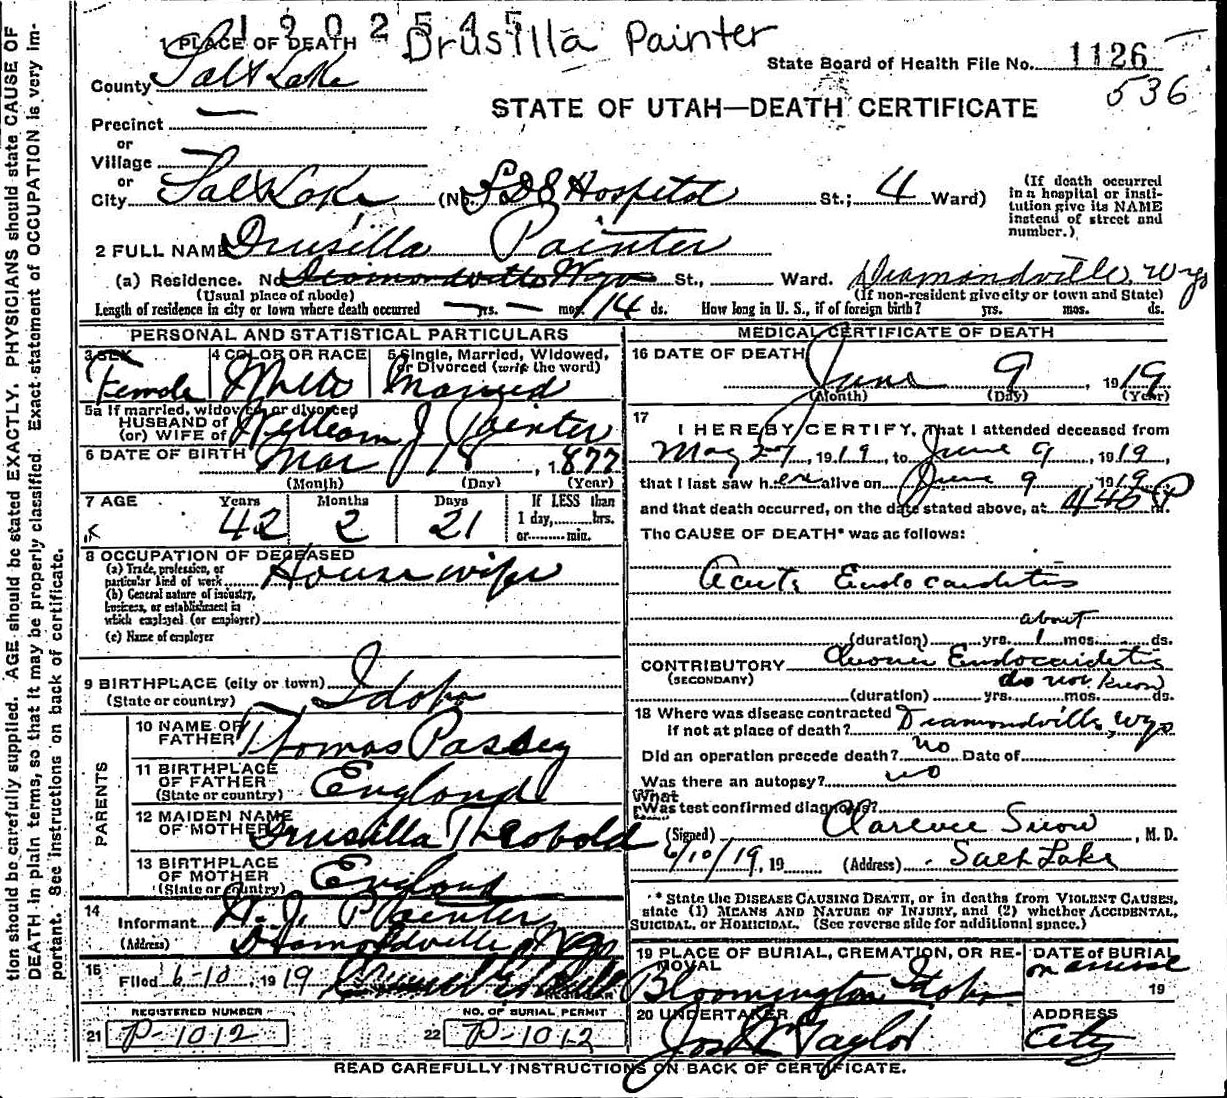 tion should be carefully supplied. AGE should be stated EXACTLY. PHYSICIANS should state CAUSE OF
DEATH in plain terms, so that it may be properly classified. Exact statement of OCCUPATION is very im-
portant. See instructions on back of certificate.
1902545
Drusilla Painter
1 PLACE OF DEATH
State Board of Health File No. 1126
536
County Salt Lake
STATE OF UTAH—DEATH CERTIFICATE
Precinct —
or
Village
or
City Salt Lake (No. LDS Hospital St.; 4 Ward)
(If death occurred
in a hospital or insti-
tution give its NAME
instead of street and
number.)
2 FULL NAME Drusilla Painter
(a) Residence. No. Diamondville Wyo St., Ward. Diamondville, Wyo
(Usual place of abode) (If non-resident give city or town and State)
Length of residence in city or town where death occurred — yrs. — mos. 14 ds. How long in U. S., if of foreign birth? yrs. mos. ds.
PERSONAL AND STATISTICAL PARTICULARS
3 SEX Female
4 COLOR OR RACE White
5 Single, Married, Widowed,
or Divorced (write the word)
Married
5a If married, widowed, or divorced
HUSBAND of
(or) WIFE of William J Painter
6 DATE OF BIRTH Mar 18, 1877
(Month) (Day) (Year)
7 AGE Years Months Days If LESS than
42 2 21 1 day, hrs.
or min.
8 OCCUPATION OF DECEASED
(a) Trade, profession, or
particular kind of work Housewife
(b) General nature of industry,
business, or establishment in
which employed (or employer)
(c) Name of employer
9 BIRTHPLACE (city or town)
(State or country) Idaho
PARENTS
10 NAME OF
FATHER Thomas Passey
11 BIRTHPLACE
OF FATHER
(State or country) England
12 MAIDEN NAME
OF MOTHER Drusilla Theobold
13 BIRTHPLACE
OF MOTHER
(State or Country) England
14
Informant W. J. Painter
(Address) Diamondville, Wyo
15
Filed 6-10, 1919
REGISTRAR
REGISTERED NUMBER
21 P-1012
NO. OF BURIAL PERMIT
22 P-1012
MEDICAL CERTIFICATE OF DEATH
16 DATE OF DEATH
June 9, 1919
(Month) (Day) (Year)
17
I HEREBY CERTIFY, That I attended deceased from
May 27, 1919, to June 9, 1919,
that I last saw her alive on June 9 1919
and that death occurred, on the date stated above, at 4 40 P m.
The CAUSE OF DEATH* was as follows:
Acute Endocarditis
about
(duration) yrs. 1 mos. ds.
CONTRIBUTORY Chronic Endocarditis
(SECONDARY) do not know
(duration) yrs. mos. ds.
18 Where was disease contracted
if not at place of death? Diamondville, Wyo
Did an operation precede death? no Date of
Was there an autopsy? no
What
Was test confirmed diagnosis?
(Signed) Clarence Snow, M. D.
6/10/19, 19 (Address) Salt Lake
* State the DISEASE CAUSING DEATH, or in deaths from VIOLENT CAUSES,
state (1) MEANS AND NATURE OF INJURY, and (2) whether ACCIDENTAL,
SUICIDAL, or HOMICIDAL. (See reverse side for additional space.)
19 PLACE OF BURIAL, CREMATION, OR RE-
MOVAL
Bloomington Idaho
DATE of BURIAL
19
20 UNDERTAKER
Jos Wm Taylor
ADDRESS
City
READ CAREFULLY INSTRUCTIONS ON BACK OF CERTIFICATE.